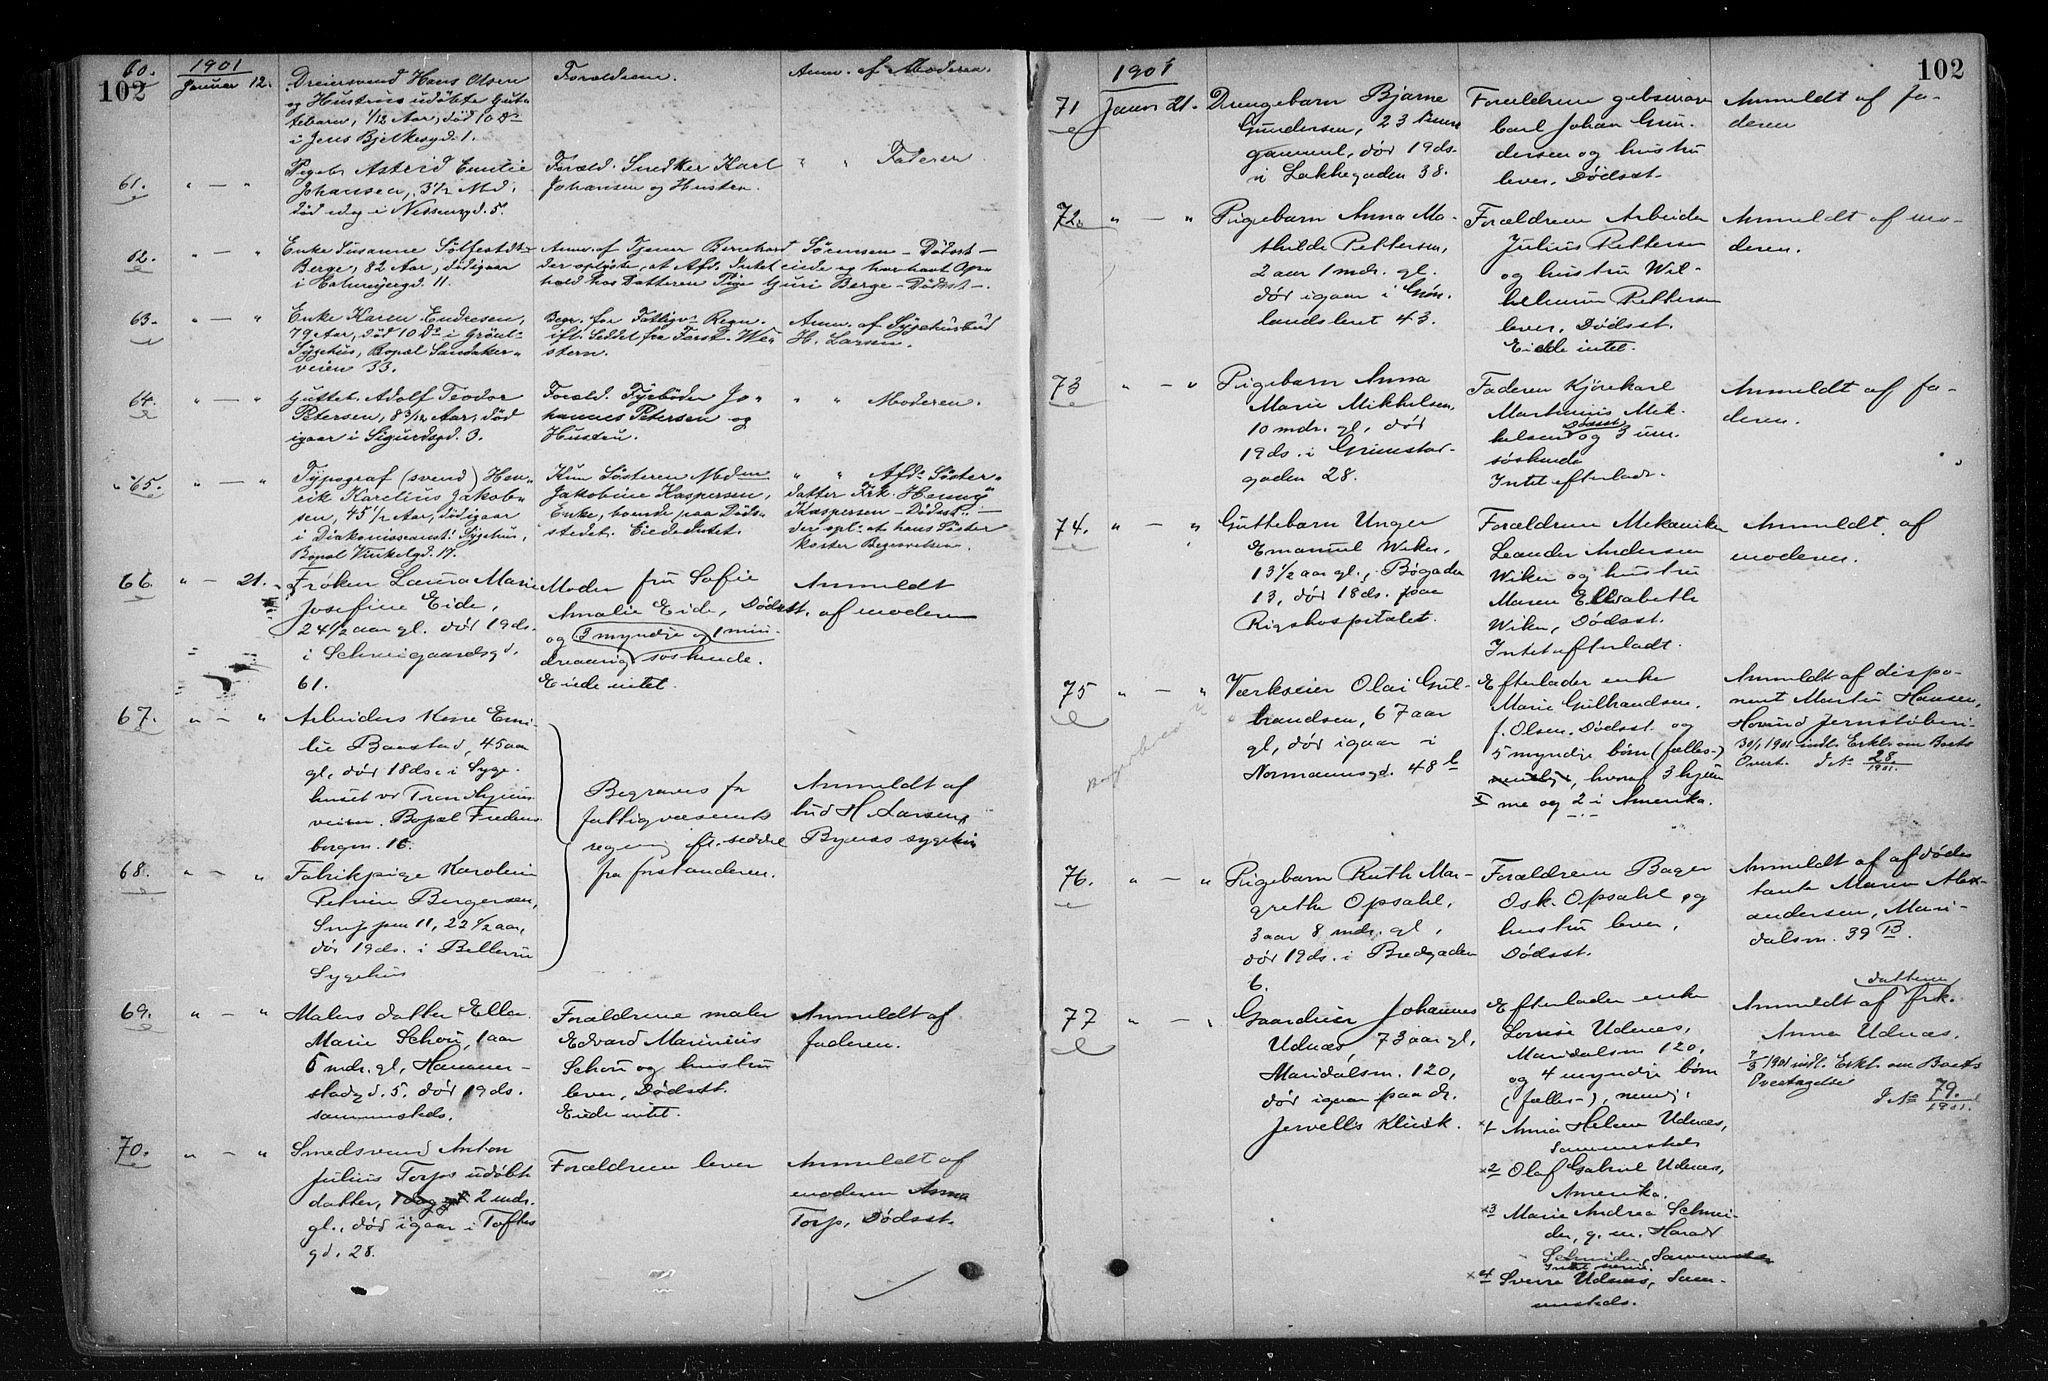 102
60.
1901
Januar 12.
Dreiersvend Hans Olsen
og Hustrus udöbte Gut-
tebarn, 1/12 Aar, död 10 Ds
i Jens Bjelkesgd. 1.
Forældrene.
Anm. af Moderen.
61.
" — "
Pigeb. Astrid Emilie
Johansen, 3 1/2 Md.,
död idag i Nessengd. 5.
Foræld. Snedker Karl
Johansen og Hustru.
" " Faderen
62.
" — "
Enke Susanne
Berge, 82 Aar, död igaar
i Calmeyergd. 11.
Anm. af Tjener Bernhard Sörensen – Dödsst –
der oplyste, at Afd. Intet eiede og har havt Op-
hold hos Datteren Pige Guri Berge – Dödsst –.
63.
" — "
Enke Karen Endresen,
79 Aar, död 10 Ds i Grönl.
Sygehus, Bopæl Sandaker-
veien 33.
Begr. for Fattigv. Regn.
ifl. Seddel fra Forst. We-
stern.
Anm. af Sygehusbud
H. Larsen.
64.
" — "
Guttet. Adolf Teodor
Petersen, 8 3/12 Aar, död
igaar i Sigurdsgd. 3.
Foræld. Fyrböder Jo-
hannes Petersen og
Hustru.
" " Moderen.
65.
" — "
Typograf (svend) Hen-
rik Karelius Jakob-
sen, 45 1/2 Aar, död igaar
i Diakonisseanst. Sygehus,
Bopæl Vinkelgd. 17.
Kun Sösteren Madam
Jakobine Kaspersen,
Enke, boende paa Döds-
stedet. Eiede Intet.
" " Afds Söster-
datter Frk. Henny
Kaspersen – Dödsst. –
der opl. at hans Söster
koster Begravelsen.
66
" — 21.
Frøken Laura Marie
Josefine Eide,
24 1/2 aar gl. dør 19ds.
i Schweigaardsgd.
61.
Moder fru Sofie
Amalie Eide, Dødsst.
og 3 myndge og 1 min-
dreaarig søskende.
Eiede intet.
Anmeldt
af moderen
67.
" — "
Arbeiders Kone Emi-
lie Baastad, 45 aar
gl, dør 18ds. i Syge-
huset v. Trondhjems-
veien. Bopæl Fredens-
borgv. 16.
Begraves for
fattigvæsenets
regning ifl. seddel
fra forstanderen.
Anmeldt af
bud H. Larsen,
Byens sygehus
68.
" — "
Fabrikpige Karoline
Petrine Bergersen,
11, 22 1/2 aar,
dør 19ds. i Bellevue
Sygehus
69.
" — "
Malers datter Ellen
Marie Schou, 1 aar
5 mdr. gl, Hammer-
stadgd. 5. dør 19ds.
sammesteds.
Forældrene maler
Edvard Marinius
Schou og hustru
lever, Dødsst.
Eiede intet.
Anmeldt af
faderen.
70.
" — "
Smedsvend Anton
Julius Torps udøbt
datter, 2 mdr.
gl., død igaar i Toftes
gd. 28.
Forældrene lever
Anmeldt af
moderen Anna
Torp, Dødsst.
102
1901
71
Januar 21.
Drengebarn Bjarne
Gundersen, 23 timer
gammel, dør 19ds.
i Lakkegaden 38.
Forældrene gibsmager
Carl Johan Gun-
dersen og hustru
lever. Dødsst.
Anmeldt af fa-
deren
72.
" — "
Pigebarn Anna Ma-
thilde Pettersen,
2 aar 1 mdr. gl.
dør igaar i Grøn-
landsleret 43.
Forældrene Arbeider
Julius Pettersen
og hustru Wil-
helmine Pettersen
lever. Dødsst.
Eiede intet.
Anmeldt af mo-
deren.
73
" — "
Pigebarn Anna
Marie Mikkelsen,
10 mdr. gl, dør
19ds. i Grimstad-
gaden 28.
Faderen Kjørekarl
Martinius Mik-
kelsen Dødsst og 3 um.
søskende
Intet efterladt.
Anmeldt af fa-
deren.
74.
" — "
Guttebarn Unger
Emanuel Wiker,
13 1/2 aar gl., Bøgaden
13, dør 18ds. paa
Rigshospitalet.
Forældrene Mekaniker
Leander Andersen
Wiken og hustru
Maren Elisabeth
Wiken, Dødsst.
Intet efterladt.
Anmeldt af
moderen.
75
" — "
Værkseier Olai Gul-
brandsen, 67 aar
gl, dør igaar i
Normannsgd. 48 b
Efterlader enke
Marie Gulbrandsen,
f. Olsen. Dødsst. og
5 myndge børn (fælles-)
hvoraf 3 hjem-
me og 2 i Amerika.
Anmeldt af dispo-
nent Martin Hansen,
Hovind Jernstøberi
30/1 1901 indl. Erkl. om Boets
Overt. J No 28/1901.
76.
" — "
Pigebarn Ruth Mar-
grethe Opsahl,
3 aar 8 mdr. gl,
dør 19ds. i Bredgaden
6.
Forældrene Bager
Osk. Opsahl og
hustru lever,
Dødsst.
Anmeldt af afdødes
tante Maren Alex-
andersen, Mari-
dalsv. 39 B.
77
" — "
Gaardeier Johannes
Udnæs, 73 aar gl,
Maridalsv. 120,
dør igaar paa dr.
Jervells Klinik.
Efterlader enke
Lovise Udnæs,
Maridalsv. 120,
og 4 myndge børn
(fælles-), nemlig:
x1 Anna Helene Udnæs,
Sammesteds
x2 Olaf Gabriel Udnæs,
Amerika.
x3 Marie Andrea Schnei-
der, g. m. Harald
Schneider, Sammesteds
x4 Sverre Udnæs, Sam-
mesteds.
Anmeldt af datteren frk.
Anna Udnæs.
7/3 1901 indl. Erkl. om Boets
Overtagelse
J No 79./1901.